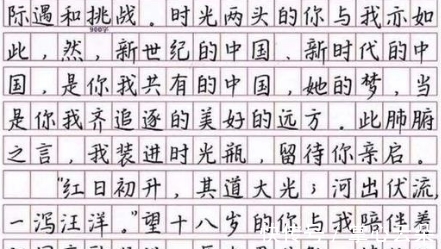 际遇和挑战。时光两头的你与我亦如
900字
此，然，新世纪的中国、新时代的中
国，是你我共有的中国，她的梦，当
是你我齐追逐的美好的远方。此肺腑
之言，我装进时光瓶，留待你亲启。
"红日初升，其道大光；河出伏流，
一泻汪洋。"望十八岁的你与我陪伴着